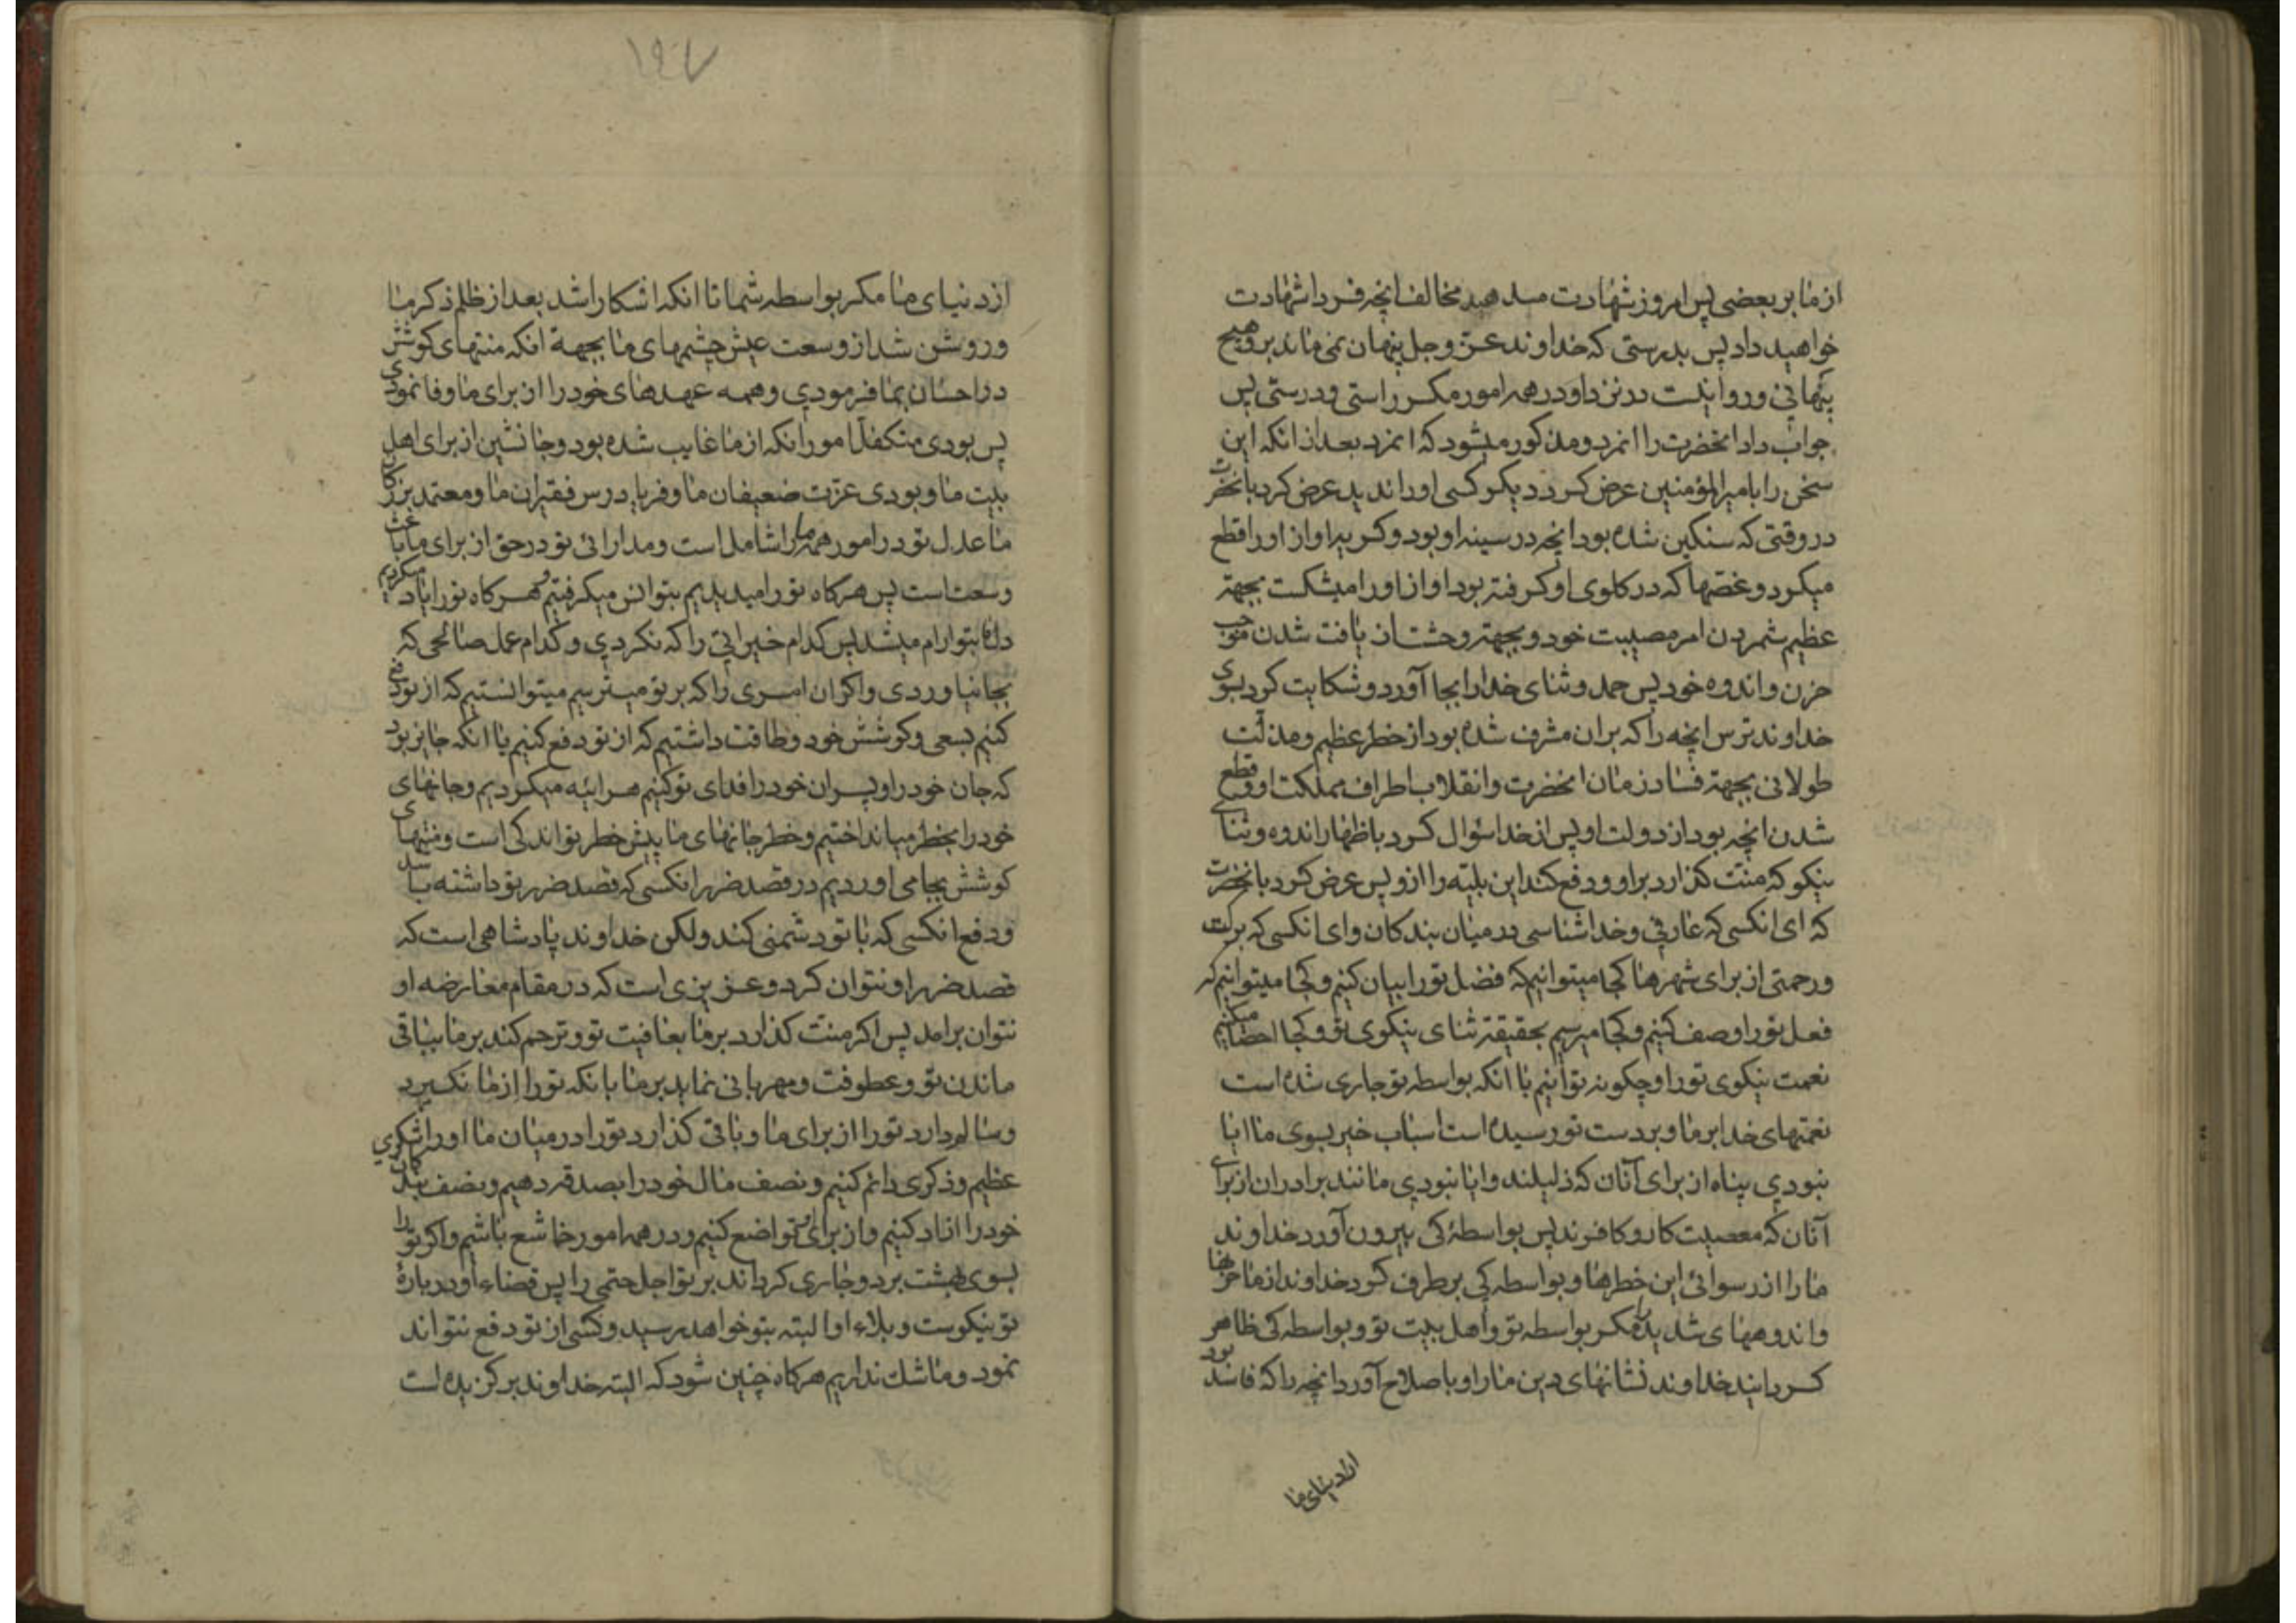 از ما بر بعضی پس امروز شهادت میدهید مخالف آنچه فردا شهادت
خواهید داد پس بدرستی که خداوند عزّ وجل پنهان نمی ماند بر او هیچ
پنهانی و روا نیست در نزد او در همه امور مکر راستی و درستی پس
جواب داد انحضرت را انمرد و مذکور میشود که انمرد بعد از انکه این
سخن را بامیرالمؤمنین عرض کرد دیکر کسی او را ندید عرض کرد بانحضرت
در وقتی که سنکین شده بود انچه در سینه او بود و کریه اواز او را قطع
میکرد و غصّها که در کلوی او کرفته بود اواز او را میشکست بجهة
عظیم شمردن امر مصیبت خود و بجهة وحشت از یافت شدن موجب
حزن و اندوه خود پس حمد و ثنای خدا را بجا آورد و شکایت کرد بسوی
خداوند ترس انچه را که بران مشرف شده بود از خطر عظیم و مذلّت
طولانی بجهة فساد زمان انحضرت و انقلاب اطراف مملکت او و قطع
شدن انچه بود از دولت او پس از خدا سؤال کرد با ظهار اندوه و ثنای
نیکو که منّت کذارد بر او و دفع کند این بلیّه را از و پس عرض کرد بانحضرت
که ای انکسی که عارفی و خداشناسی در میان بندکان و ای انکسی که برکت
و رحمتی از برای شهرها کجا میتوانیم که فضل تو را بیان کنیم و کجا میتوانیم که
فعل تو را وصف کنیم و کجا میرسیم بحقیقة ثنای نیکوی تو و کجا احصا میکنیم
نعمت نیکوی تو را و چکونه توانیم با انکه بواسطه تو جاری شده است
نعمتهای خدا بر ما و بر دست تو رسیده است اسباب خیر بسوی ما ایا
نبودی پناه از برای آنان که ذلیلند و ایا نبودی مانند برادران از برای
آنان که معصیت کار و کافرند پس بواسطهٔ کی بیرون آورد خداوند
ما را از رسوائی این خطرها و بواسطه کی بر طرف کرد خداوند از ما حزنها
و اندوههای شدید را مکر بواسطه تو و اهل بیت تو و بواسطه کی ظاهر
کردانید خداوند نشانهای دین ما را و باصلاح آورد انچه را که فاسد بود
از دنیای ما
از دنیای ما مکر بواسطه شما تا انکه اشکارا شد بعد از ظلم ذکر ما
و روشن شد از وسعت عیش چشمهای ما بجهة انکه منتهای کوشش
در احسان بما فرمودی و همه عهدهای خود را از برای ما وفا نمودی
پس بودی متکفّل امور انکه از ما غایب شده بود و جانشین از برای اهل
بیت ما و بودی عزّت ضعیفان ما و فریاد رس فقیران ما و معتمد بزرکان
ما عدل تو در امور همه ما را شامل است و مدارائی تو در حق از برای ما باعث
وسعت است پس هرکاه تو را میدیدیم بتو انس میکرفتیم و هرکاه تو را یاد میکردیم
دل ما بتو ارام میشد پس کدام خیراتی را که نکردی و کدام عمل صالحی که
بجا نیاوردی و اکر ان امری را که بر تو میترسیم میتوانستیم که از تو دفع
کنیم بسعی و کوشش خود و طاقت داشتیم که از تو دفع کنیم یا انکه جایز بود
که جان خود را و پسران خود را فدای تو کنیم هر اینه میکردیم و جانهای
خود را بخطر میانداختیم و خطر جانهای ما پیش خطر تو اندکی است و منتهای
کوشش بجا می اوردیم در قصد ضرر انکسی که قصد ضرر تو داشته باشد
و دفع انکسی که با تو دشمنی کند ولکن خداوند پادشاهی است که
قصد ضرر او نتوان کرد و عزیزی است که در مقام معارضه او
نتوان برامد پس اکر منّت کذارد بر ما بعافیت تو و ترحم کند بر ما بباقی
ماندن تو و عطوفت و مهربانی نماید بر ما بانکه تو را از ما نکیرد
و سالم دارد تو را از برای ما و باقی کذارد تو را در میان ما او را شکری
عظیم و ذکری دائم کنیم و نصف مال خود را بصدقه دهیم و نصف بندکان
خود را ازاد کنیم و از برای او تواضع کنیم و در همه امور خاشع باشیم و اکر تو را
بسوی بهشت برد و جاری کرداند بر تو اجل حتمی را پس قضاء او در بارهٔ
تو نیکوست و بلاء او البته بتو خواهد رسید و کسی از تو دفع نتواند
نمود و ما شك نداریم هرکاه چنین شود که البته خداوند برکزیده است